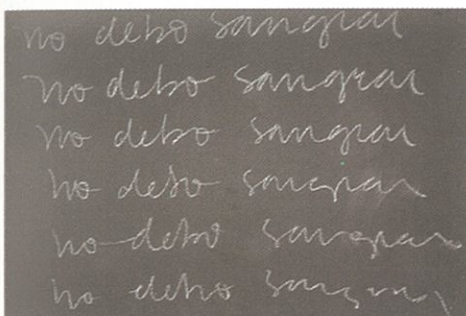 no debo sangrar
no debo sangrar
no debo sangrar
no debo sangrar
no debo sangrar
no debo